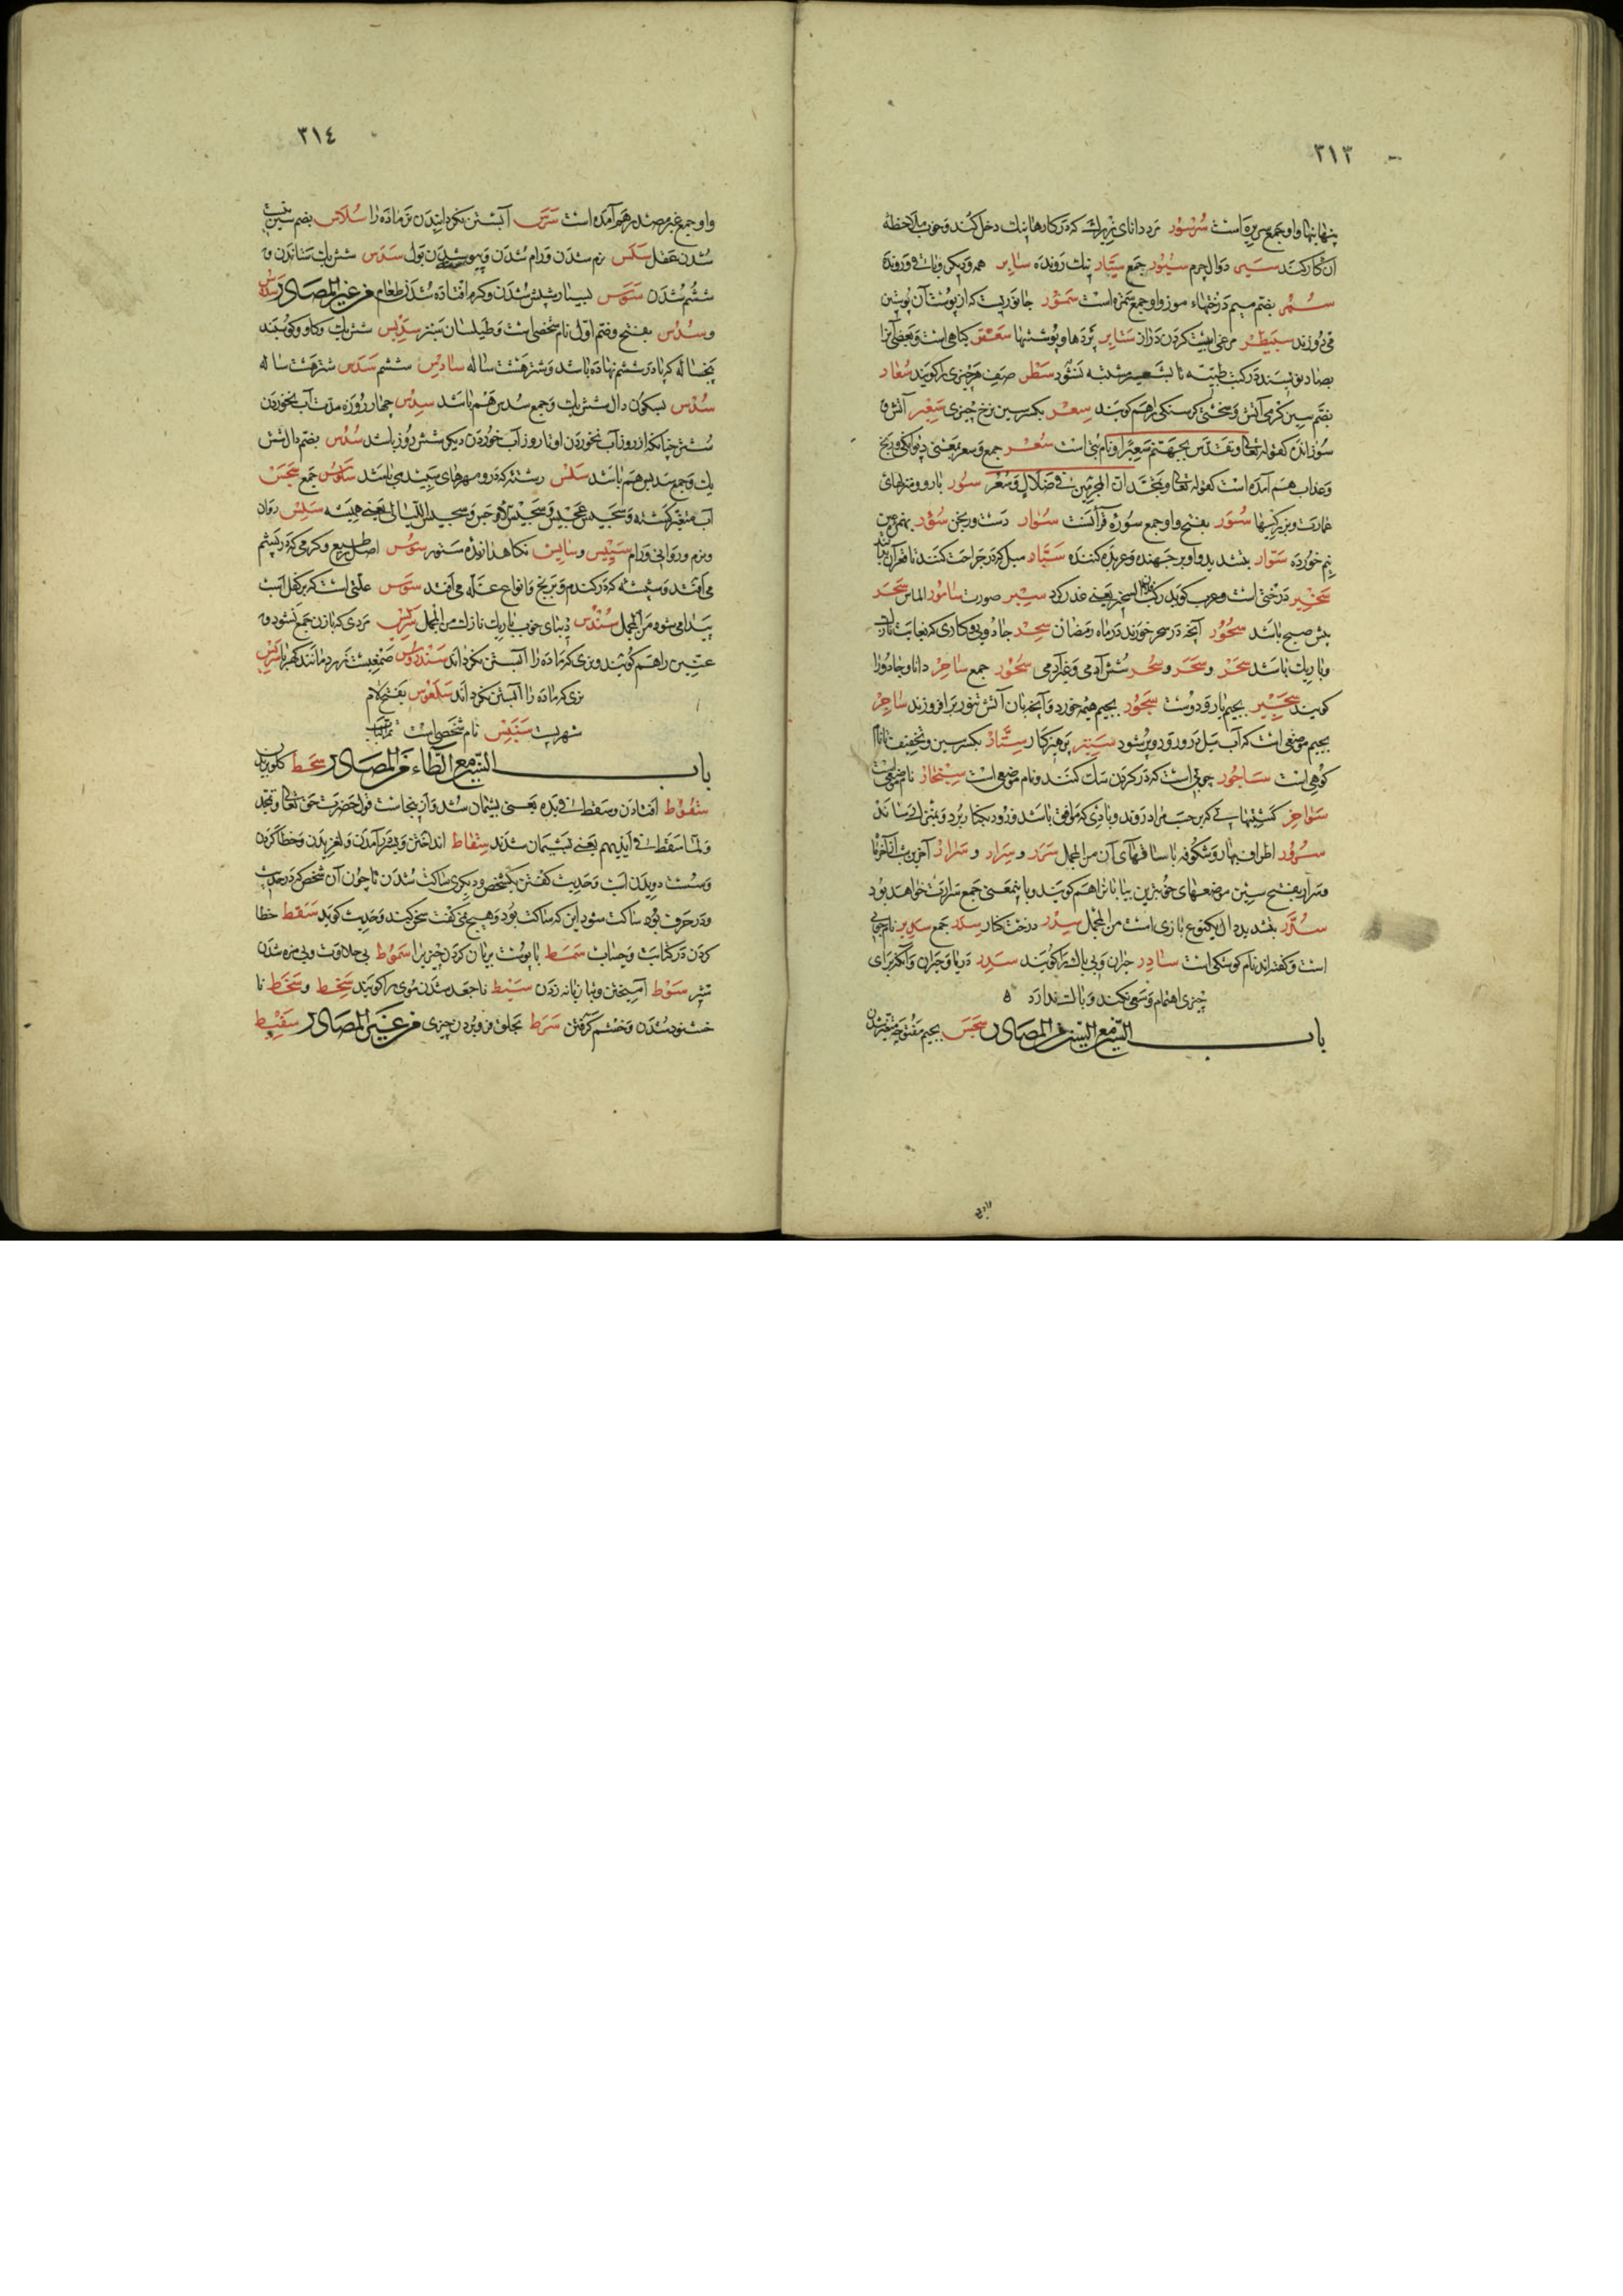 ٣١٣
پنهانیها و او جمع سریره است سُرسُور مرد دانای زیرک که در کارها نیک دخل کند و خوب ملاحظهٔ
آن کار کند سیر دوال چرم سُیُور جمع سیّار نیک رونده سایر همه و دیگر و باقی و رونده
سُمُر بضم میم درختهاء موز و او جمع سمره است سمّور جانوریست که از پوست آن پوستین
می دوزند سبیطر مرغی است گردن دراز ستایر پرده ها و پوششها سعتر گیاهی است و بعضی آنرا
بصاد نویسند در کتب طبیّه تا بشعیر مشتبه نشود سطر صف هر چیزی را گویند سُعار
بضم سین گرمی آتش و سختی گرسنگی را هم گویند سِعر بکسر سین نرخ چیزی سعیر آتش
سوزان که قوله تعالی و نام بتی است سُعُر جمع و سعر یعنی دیوانگی و رنج
و عذاب هم آمده است کقوله تعالی انّ المجرمین فی ضلال و سعر سور بارو و منزلهای
عمارت سُوَر بفتح واو جمع سوره قرآنست سوار دست ورنجن سُؤر نیم
خورده سوّار بتشدید واو بر جهنده و عربده کننده سبّار میل که در جراحت کنند تا قعر آن
درختی است و عرب گوید یعنی غدر کرد سبر صورت سامور الماس سَحَر
پیش صبح باشد سحور آنچه در سحر خورند در ماه رمضان سِحر جادویی و کاری که بغایت نازک
و باریک باشد سَحر و سَحَر و سُحر شش آدمی و غیر آدمی سُحور جمع ساحر دانا و جادو را
گویند سجیر بجیم یار و دوست سجور بجیم هیمه خورد و آنچه بان آتش تنور بر افروزند ساجر
بجیم موضعی است که آب سیل درو رود و پر شود پرهیزکار بکسر سین و تخفیف نا نام
کوهی است ساجور چوبی است که در گردن سگ کنند و نام موضعی است سنجار نام موضعی است
سواخر کشتیهایی که بر حسب مراد روند و بادی که موافق باشد و زود بکنار برد و بمنزل رساند
سرور اطراف و شکوفه با ساقهای آن من المجمل سَرَر و سِرار و سَرار آخرین شب از آخر ماه
و سرار بفتح سین موضعهای خوبترین بیابان را هم گویند و باینمعنی جمع سرارت خواهد بود
سُدّر بتشدید دال یکنوع بازی است من المجمل سِدر درخت کنار سِدَر جمع سدیر نام جایی
است و گفته اند نام کوشکی است سادر حیران و بی باک را گویند سَدَر دریا و حیران و آنکه برای
چیزی اهتمام و سعی نکند و باک ندارد ٥
باب السّین مع السّین من المصادر سَجَس بجیم مفتوحه متغیر شدن
٣١٤
و او جمع غیر مصدر هم آمده است سَرَس آبستن نگردانیدن نر ماده را سُلاس بضم سین نیست
شدن عقل سَلَس نرم شدن و رام شدن و پیوسته شدن بول سَدس شش یک ستاندن و
ششم شدن سَوَس بسیار شپش شدن و کرم افتاده شدن طعام من غیر المصادر
و سُدُس بفتح و ضم اوّل نام شخصی است و طیلسان سبز سدیس شش یک و گاو و گوسفند
پنجساله که پا در ششم نهاده باشد و شتر هشت ساله سادس ششم سَدَس شتر هشت ساله
سُدْس بسکون دال شش یک و جمع سدس هم باشد سِدس چهار روزه مدّت آب نخوردن
شتر چنانکه از روز آب نخوردن او تا روز آب خوردن دیگر شش روز باشد سُدُس بضم دال شش
یک و جمع سدیس هم باشد سَلس رشته که درو مهرهای سپید می باشد سُلوس جمع سَجَس
آب متغیر گشته و سجیس عجیس و سجیس الاوجس و سجیس اللیالی یعنی همیشه سَلِس روان
و نرم و روانی و رام سَیِّس و سایس نگاهدارنده ستور سوس اصل و طبع و کرمی که در پشم
می افتد و شپشه که در گندم و برنج و انواع غلّه می افتد سَوَس علّتی است که بر کفل اسب
پیدا می شود من المجمل سُندُس دیبای خوب باریک نازک من المجمل سریس مردی که با زن جمع نشود و
عنّین را هم گویند و نری که ماده را آبستن نگرداند سندروس صمغیست زرد مانند کهربا سَرِس
نری که ماده را آبستن نگرداند سَلَعوس بفتح لام
شهریست سَنبَس نام شخصی است تم الکتاب
باب السّین مع الطّاء من المصادر سَحط گلو بریدن
سُقوط افتادن و سقط فی یده یعنی پشیمان شد و از ینجاست قول حضرت حق تعالی و تمجّد
و لمّا سقط فی ایدیهم یعنی پشیمان شدند سِقاط انداختن و بسر در آمدن و لغزیدن و خطا کردن
و سست دویدن اسب و حدیث گفتن یکشخص و دیگری ساکت شدن تا چون آن شخص که در حدیث
و در حرف بوده ساکت شود این که ساکت بود و هیچ نمی گفت سخن کند و حدیث گوید سَقَط خطا
کردن در کتابت و حساب سَمط با پوست بریان کردن چیزی را سُموط بی حلاوت و بی مزه شدن
شیر سَوط آمیختن و بتازیانه زدن سَبط ناجعد شدن موی را گویند سُخط و سَخَط نا
خشنود شدن و خشم گرفتن سَرَط بحلق فرو بردن چیزی من غیر المصادر سَقیط